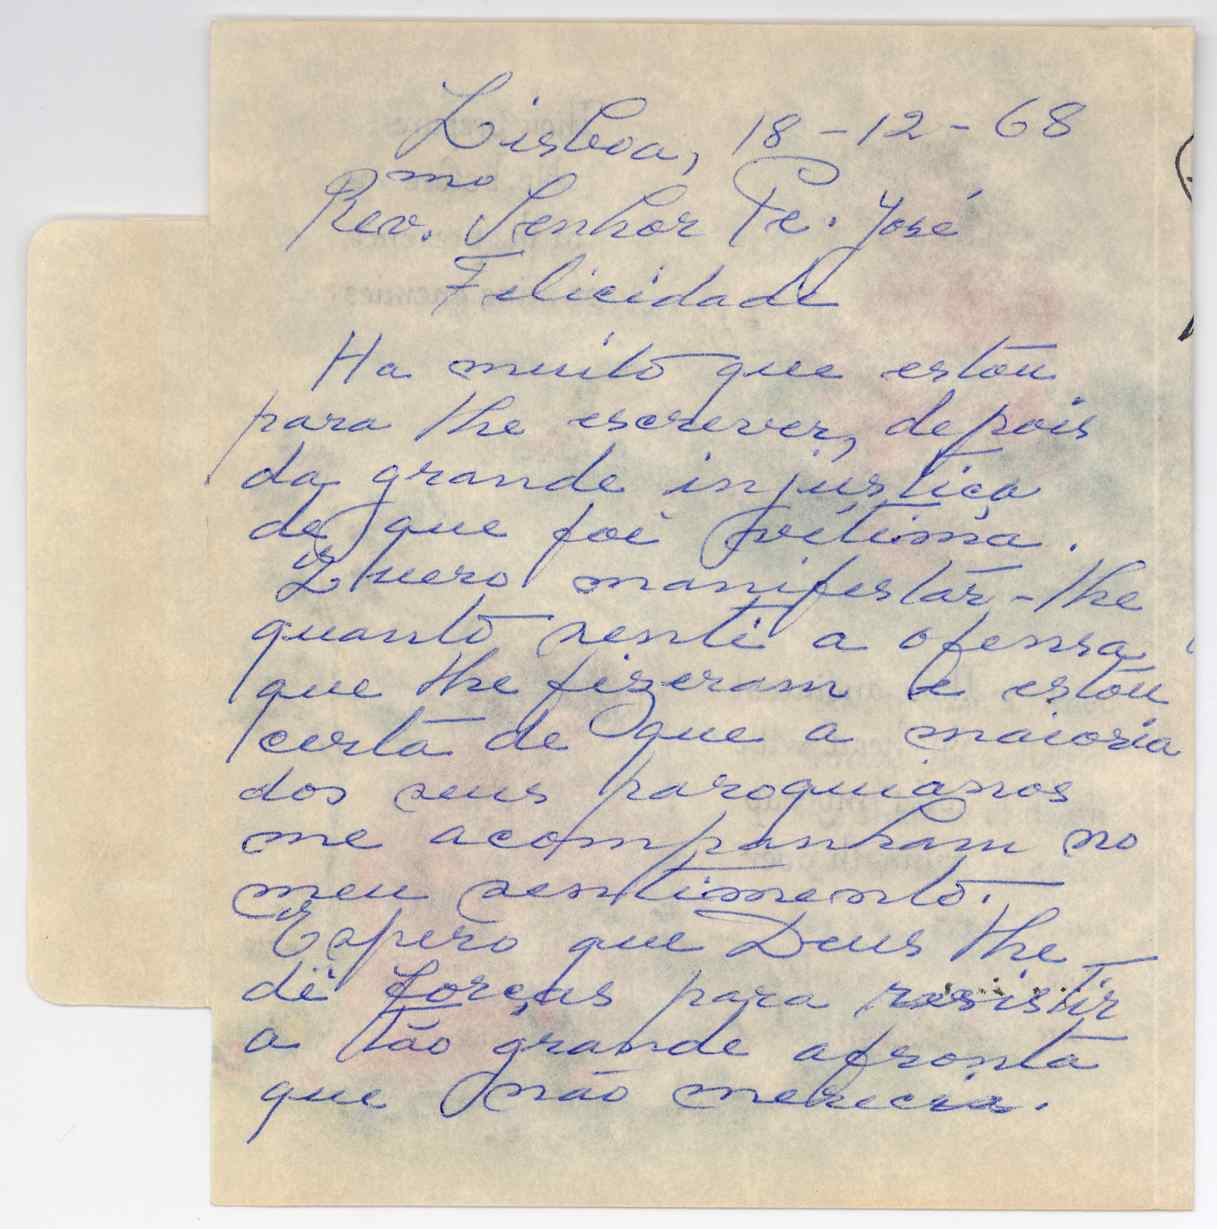 Lisboa, 18-12-68
Rev.mo Senhor Pe. José
Felicidade
Ha muito que estou
para lhe escrever, depois
da grande injustiça
de que foi vítima.
Quero manifestar-lhe
quanto senti a ofensa
que lhe fizeram e estou
certa de que a maioria
dos seus paroquianos
me acompanham no
meu sentimento.
Espero que Deus lhe
dê forças para resistir
a tão grande afronta
que não merecia.